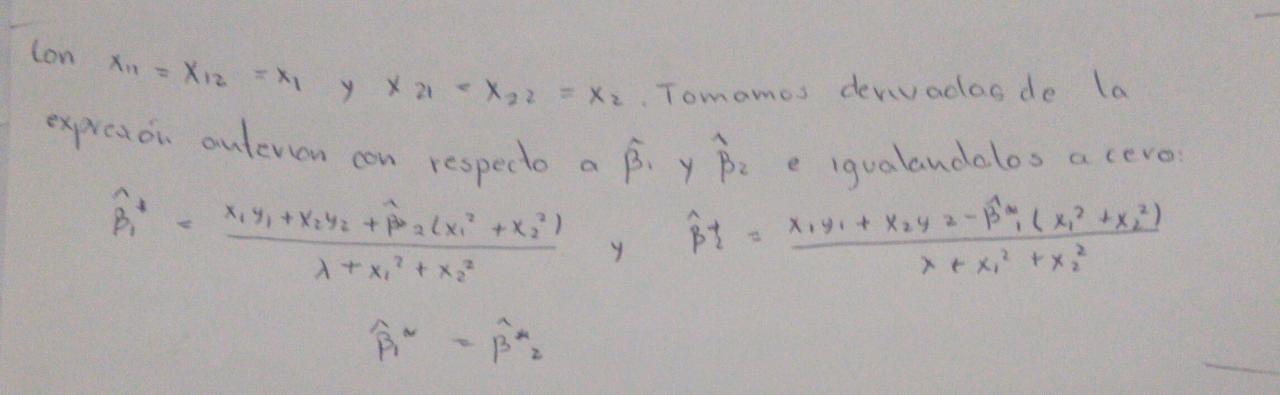 Con x₁₁ = x₁₂ = x₁ y x₂₁ = x₂₂ = x₂. Tomamos derivadas de la
expresión anterior con respecto a β̂₁ y β̂₂ e igualandolos a cero:
β̂₁* = (x₁y₁ + x₂y₂ + β̂*₂(x₁² + x₂²)) / (λ + x₁² + x₂²) y β̂₂* = (x₁y₁ + x₂y₂ - β̂*₁(x₁² + x₂²)) / (λ + x₁² + x₂²)
β̂₁* = β̂*₂